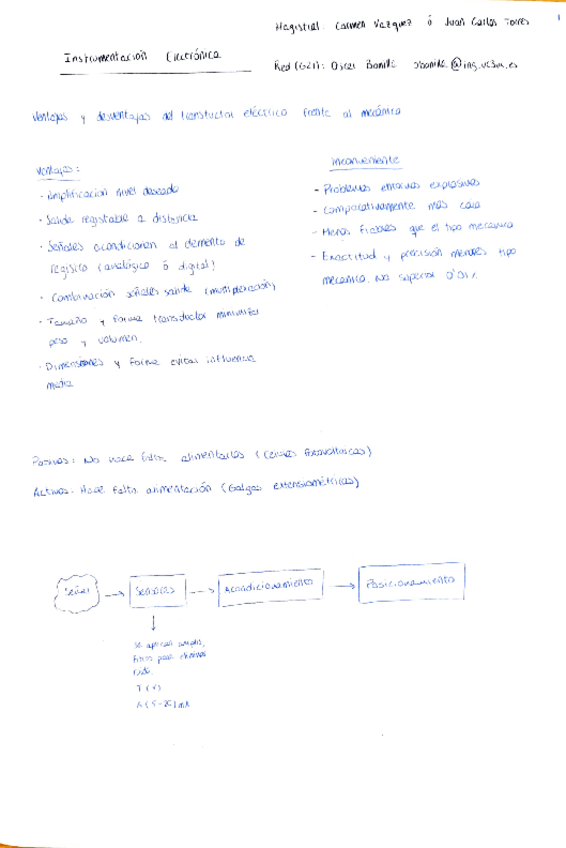 Magistral: Carmen Vazquez ó Juan Carlos Torres
1
Instrumentación Electrónica
Red (G21): Oscar Bonilla @ing.uc3m.es
Ventajas y desventajas del transductor eléctrico frente al mecánico
Ventajas:
· Amplificacion nivel deseado
· Salida registable a distancia
· Señales acondicionan al elemento de
registro (analógico ó digital)
· Combinación señales salida (multiplexación)
· Tamaño y forma transductor
peso y volumen.
· Dimensiones y forma evitar influencia
Inconveniente
- Problemas entornos explosivos
- Comparativamente más cara
- Menos fiables que el tipo mecanico
- Exactitud y precisión menores tipo
mecánico. No superior 0'01%
Pasivos: No hace falta alimentarlos (células fotovoltaicas)
Activos: Hace falta alimentación (Galgas extensiométricas)
Señal
Sensores
Acondicionamiento
Posicionamiento
se aplican
filtros para eliminar
ruido.